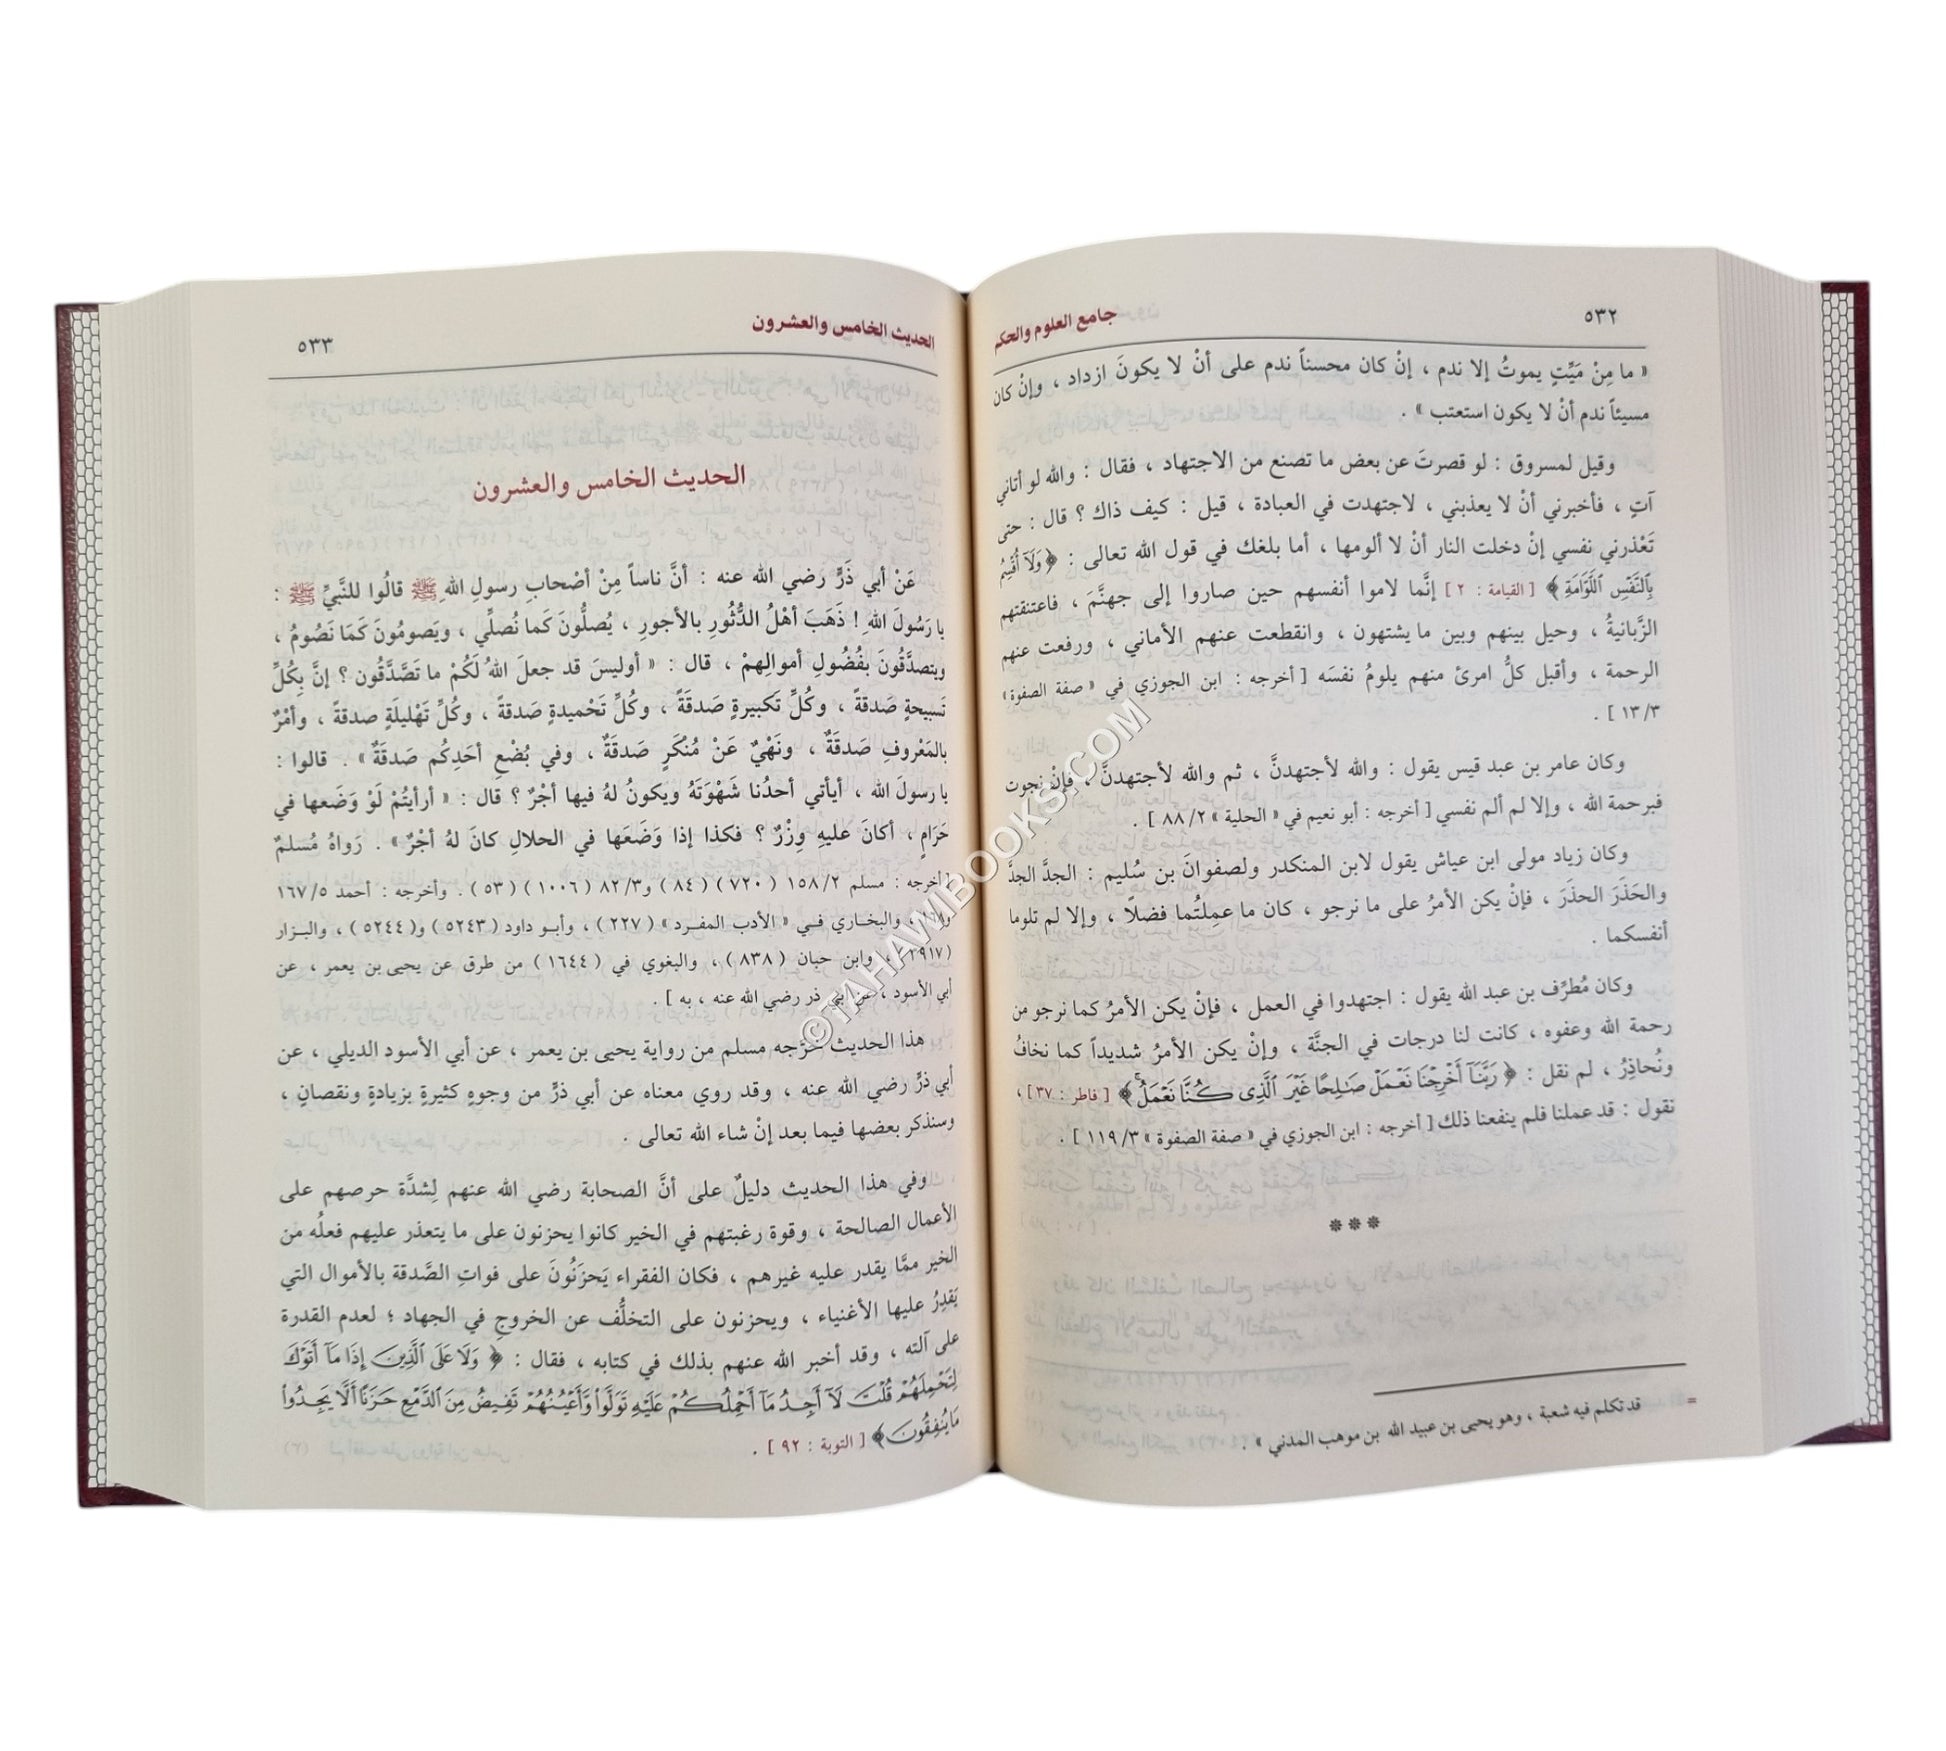 ٥٣٢
جامع العلوم والحكم
« ما مِنْ مَيِّتٍ يموتُ إلا ندم ، إنْ كان محسناً ندم على أنْ لا يكونَ ازداد ، وإنْ كان
مسيئاً ندم أنْ لا يكون استعتب » .
وقيل لمسروق : لو قصرتَ عن بعض ما تصنع من الاجتهاد ، فقال : والله لو أتاني
آتٍ ، فأخبرني أنْ لا يعذبني ، لاجتهدت في العبادة ، قيل : كيف ذاك ؟ قال : حتى
تَعْذرني نفسي إنْ دخلت النار أنْ لا ألومها ، أما بلغك في قول الله تعالى : ﴿ وَلَآ أُقْسِمُ
بِٱلنَّفْسِ ٱللَّوَّامَةِ ﴾ [ القيامة : ٢ ] إنَّما لاموا أنفسهم حين صاروا إلى جهنَّمَ ، فاعتنقتهم
الزَّبانيةُ ، وحيل بينهم وبين ما يشتهون ، وانقطعت عنهم الأماني ، ورفعت عنهم
الرحمة ، وأقبل كلُّ امرئ منهم يلومُ نفسَه [ أخرجه : ابن الجوزي في « صفة الصفوة »
٣/ ١٣ ] .
وكان عامر بن عبد قيس يقول : والله لأجتهدنَّ ، ثم والله لأجتهدنَّ ، فإنْ نجوت
فبرحمة الله ، وإلا لم ألم نفسي [ أخرجه : أبو نعيم في « الحلية » ٢/ ٨٨ ] .
وكان زياد مولى ابن عياش يقول لابن المنكدر ولصفوانَ بن سُليم : الجدَّ الجدَّ
والحَذَرَ الحذَرَ ، فإنْ يكن الأمرُ على ما نرجو ، كان ما عمِلتُما فضلاً ، وإلا لم تلوما
أنفسكما .
وكان مُطرِّف بن عبد الله يقول : اجتهدوا في العمل ، فإنْ يكن الأمرُ كما نرجو من
رحمة الله وعفوه ، كانت لنا درجات في الجنَّة ، وإنْ يكن الأمرُ شديداً كما نخافُ
ونُحاذِرُ ، لم نقل : ﴿ رَبَّنَآ أَخْرِجْنَا نَعْمَلْ صَٰلِحًا غَيْرَ ٱلَّذِى كُنَّا نَعْمَلُ ﴾ [ فاطر : ٣٧ ] ،
نقول : قد عملنا فلم ينفعنا ذلك [ أخرجه : ابن الجوزي في « صفة الصفوة » ٣/ ١١٩ ] .
***
= قد تكلم فيه شعبة ، وهو يحيى بن عبيد الله بن موهب المدني » .
الحديث الخامس والعشرون
٥٣٣
الحديث الخامس والعشرون
عَنْ أبي ذَرٍّ رضي الله عنه : أنَّ ناساً مِنْ أصْحابِ رسولِ اللهِ ﷺ قالُوا للنَّبيِّ ﷺ :
يا رَسُولَ اللهِ ! ذَهَبَ أهْلُ الدُّثُورِ بالأجورِ ، يُصلُّونَ كَما نُصلِّي ، ويَصومُونَ كَمَا نَصُومُ ،
ويتصدَّقُونَ بفُضُولِ أموالِهِمْ ، قال : « أوليسَ قد جعلَ اللهُ لَكُمْ ما تَصَّدَّقُون ؟ إنَّ بِكُلِّ
تَسبيحةٍ صَدقةً ، وكُلِّ تَكبيرةٍ صَدقَةً ، وكُلِّ تَحْميدةٍ صَدقةً ، وكُلِّ تَهْليلَةٍ صدقةً ، وأمْرٌ
بالمَعْروفِ صَدقَةٌ ، ونَهْيٌ عَنْ مُنْكَرٍ صَدقَةٌ ، وفي بُضْعِ أحَدِكُم صَدقَةٌ » . قالوا :
يا رسولَ الله ، أيأتي أحدُنا شَهْوَتَهُ ويكونُ لهُ فيها أجْرٌ ؟ قال : « أرأيتُمْ لَوْ وَضَعها في
حَرَامٍ ، أكانَ عليهِ وِزْرٌ ؟ فكذا إذا وَضَعَها في الحلالِ كانَ لهُ أجْرٌ » . رَواهُ مُسلمٌ
[ أخرجه : مسلم ٢/ ١٥٨ ( ٧٢٠ ) ( ٨٤ ) و٣/ ٨٢ ( ١٠٠٦ ) ( ٥٣ ) . وأخرجه : أحمد ٥/ ١٦٧
، والبخاري في « الأدب المفرد » ( ٢٢٧ ) ، وأبو داود ( ٥٢٤٣ ) و( ٥٢٤٤ ) ، والبزار
( ٣٩١٧ ) ، وابن حبان ( ٨٣٨ ) ، والبغوي في ( ١٦٤٤ ) من طرق عن يحيى بن يعمر ، عن
أبي الأسود ، عن أبي ذر رضي الله عنه ، به ] .
هذا الحديث خرَّجه مسلم من رواية يحيى بن يعمر ، عن أبي الأسود الديلي ، عن
أبي ذرٍّ رضي الله عنه ، وقد روي معناه عن أبي ذرٍّ من وجوهٍ كثيرةٍ بزيادةٍ ونقصانٍ ،
وسنذكر بعضها فيما بعد إنْ شاء الله تعالى .
وفي هذا الحديث دليلٌ على أنَّ الصحابة رضي الله عنهم لِشدَّة حرصهم على
الأعمال الصالحة ، وقوة رغبتهم في الخير كانوا يحزنون على ما يتعذر عليهم فعلُه من
الخير ممَّا يقدر عليه غيرهم ، فكان الفقراء يَحزَنُونَ على فواتِ الصَّدقة بالأموال التي
يَقدِرُ عليها الأغنياء ، ويحزنون على التخلُّف عن الخروجِ في الجهاد ؛ لعدم القدرة
على آلته ، وقد أخبر الله عنهم بذلك في كتابه ، فقال : ﴿ وَلَا عَلَى ٱلَّذِينَ إِذَا مَآ أَتَوْكَ
لِتَحْمِلَهُمْ قُلْتَ لَآ أَجِدُ مَآ أَحْمِلُكُمْ عَلَيْهِ تَوَلَّوا۟ وَّأَعْيُنُهُمْ تَفِيضُ مِنَ ٱلدَّمْعِ حَزَنًا أَلَّا يَجِدُوا۟
مَا يُنفِقُونَ ﴾ [ التوبة : ٩٢ ] .
©TAHAWIBOOKS.COM